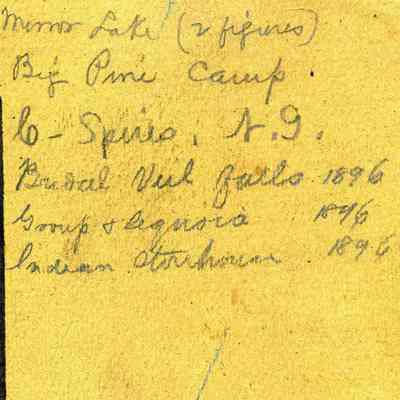 Mirror Lake (2 figures)
Big Pine Camp
C - Spires, N.G.
Bridal Veil Falls 1896
Group & Sequoia 1896
Indian Storehouse 1896